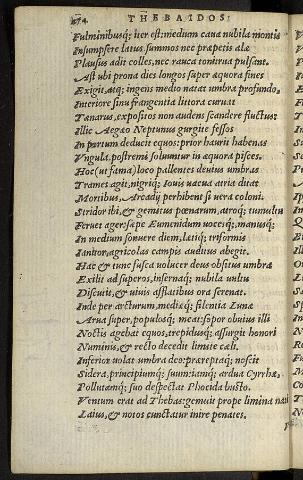 274 THEBAIDOS
Fulminibusq; iter est: medium caua nubila montis
Insumpsere latus. summos nec præpetis alæ
Plausus adit colles, nec rauca tonitrua pulsant.
Ast ubi prona dies longos super æquora fines
Exigit, atq; ingens medio natat umbra profundo.
Interiore sinu frangentia littora curuat
Tænarus, expositos non audens scandere fluctus:
Illic Aegæo Neptunus gurgite fessos
In portum deducit equos: prior haurit habenas
Vngula, postremi soluuntur in æquora pisces.
Hoc (ut fama) loco pallentes deuius umbras
Trames agit, nigriq; Iouis uacua atria ditat
Mortibus. Arcadii perhibent si uera coloni.
Stridor ibi, & gemitus pœnarum, atroq; tumultu
Feruet ager: sæpe Eumenidum uocesq;, manusq;
In medium sonuere diem, letiq; triformis
Ianitor, agricolas campis auditus abegit.
Hac & tunc fusca uolucer deus obsitus umbra
Exilit ad superos, infernaq; nubila uultu
Discutit, & uiuis afflatibus ora serenat.
Inde per arcturum, mediæq; silentia Lunæ
Arua super, populosq; meat: sopor obuius illi
Noctis agebat equos, trepidusq; assurgit honori
Numinis, & recto decedit limite cœli.
Inferior uolat umbra deo: præreptaq; noscit
Sidera, principiumq; suum: iamq; ardua Cyrrhæ,
Pollutamq; suo despectat Phocida busto.
Ventum erat ad Thebas: gemuit prope limina nati
Laius, & notos cunctatur inire penates.